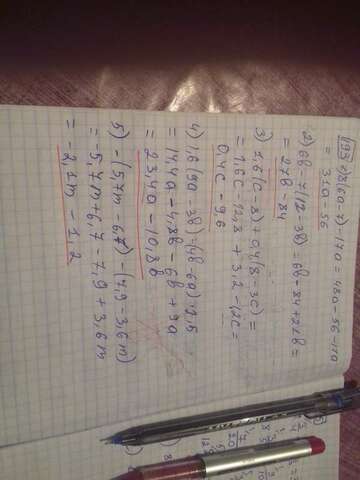 193 1) 8(6a-7)-17a = 48a-56-17a
= 31a-56
2) 6b-7(12-3b)=6b-84+21b=
= 27b-84
3) 1,6(c-8)+0,4(8-3c)=
= 1,6c-12,8+3,2-1,2c=
0,4c-9,6
4) 1,6(9a-3b)-(4b-6a)·2,5
= 14,4a-4,8b-6b+9a
= 23,40a-10,8b
5) -(5,7m-6,7)-(7,9-3,6m)
= -5,7m+6,7-7,9+3,6m
= -2,1m-1,2